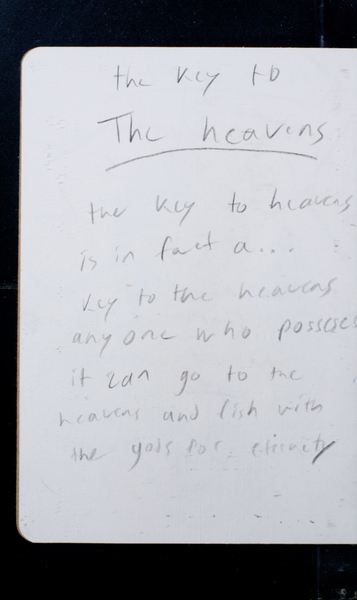 the key to
The heavens
the key to heavens
is in fact a...
key to the heavens
any one who posseses
it can go to the
heavens and lish with
the gods for eternety